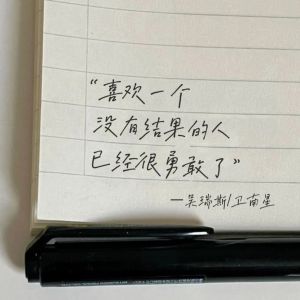 “喜欢一个
没有结果的人
已经很勇敢了”
—吴瑞斯/卫南星